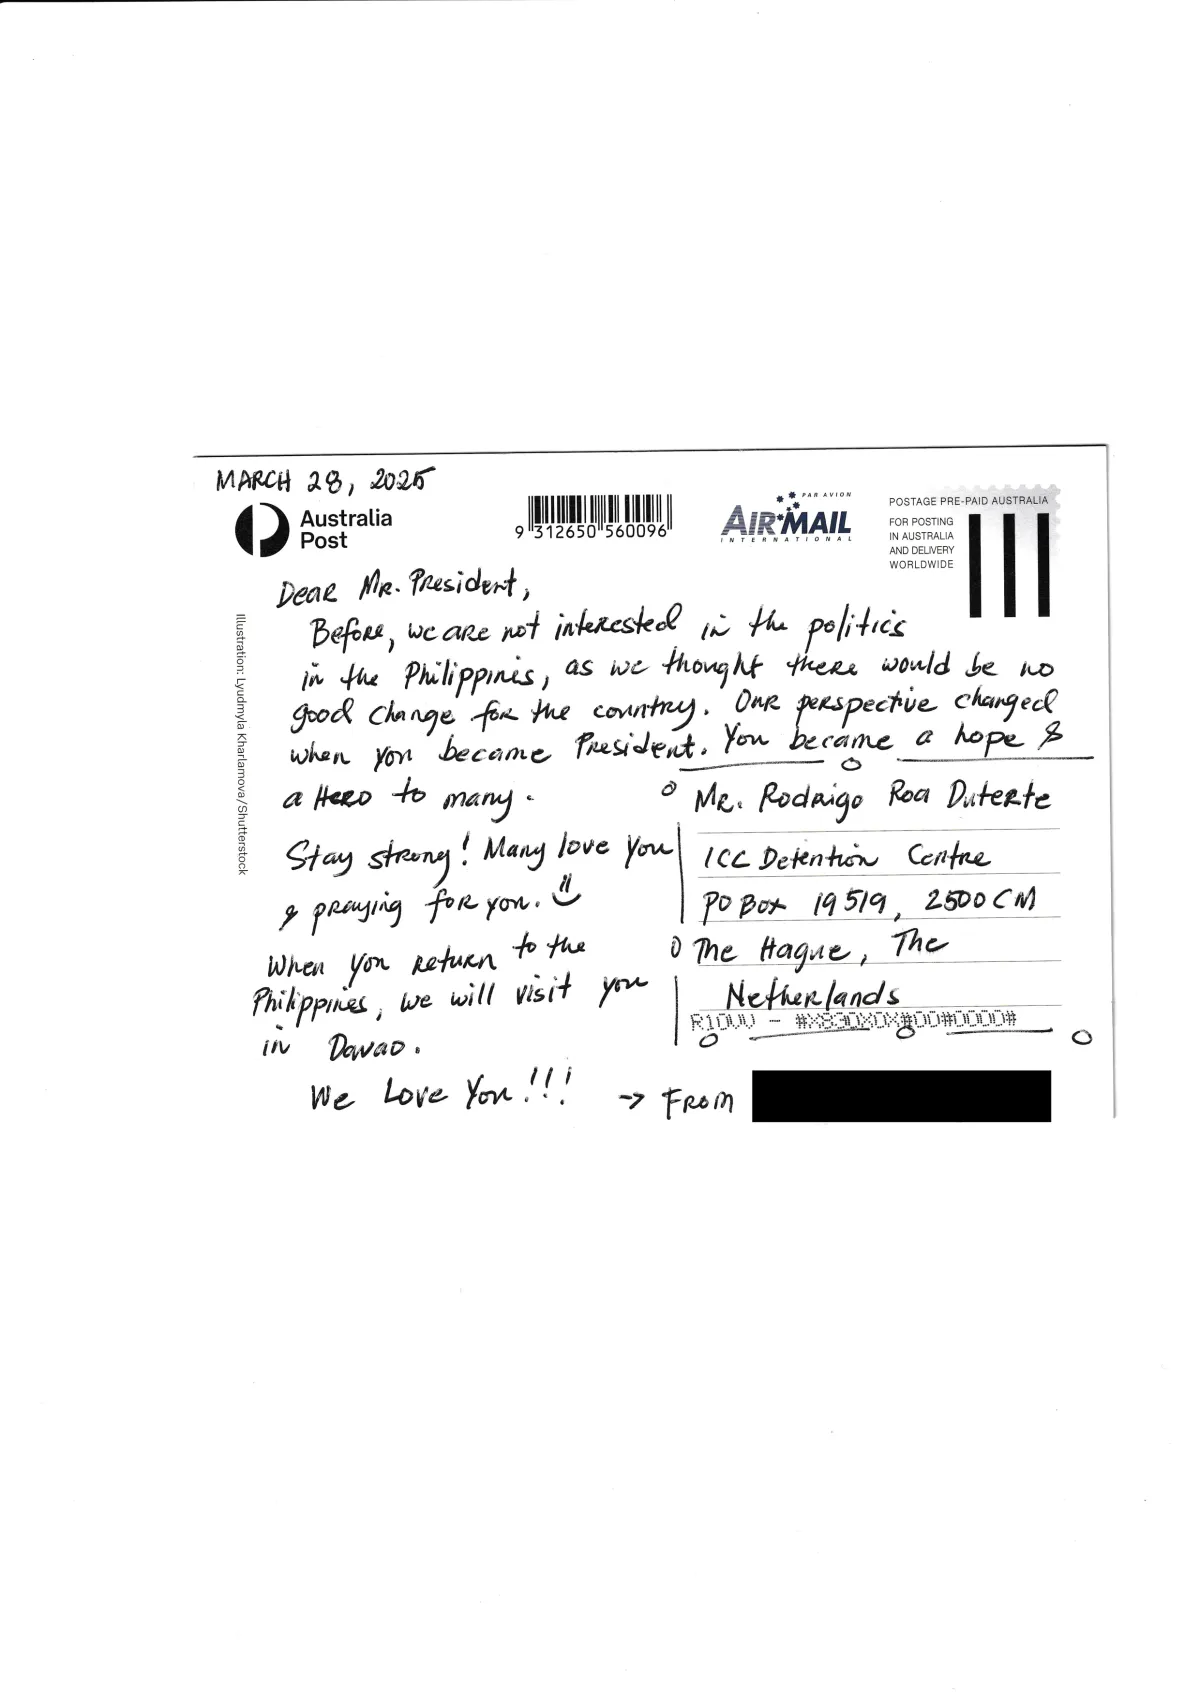 MARCH 28, 2025
Australia
Post
9 312650 560096
PAR AVION
AIRMAIL
INTERNATIONAL
POSTAGE PRE-PAID AUSTRALIA
FOR POSTING
IN AUSTRALIA
AND DELIVERY
WORLDWIDE
Illustration: Lyudmyla Kharlamova/Shutterstock
Dear Mr. President,
Before, we are not interested in the politics
in the Philippines, as we thought there would be no
good change for the country. Our perspective changed
when you became President. You became a hope &
a Hero to many.
Stay strong! Many love you
& praying for you.
When you return to the
Philippines, we will visit you
in Davao.
We Love You!!!
→ From
Mr. Rodrigo Roa Duterte
ICC Detention Centre
PO Box 19519, 2500 CM
The Hague, The
Netherlands